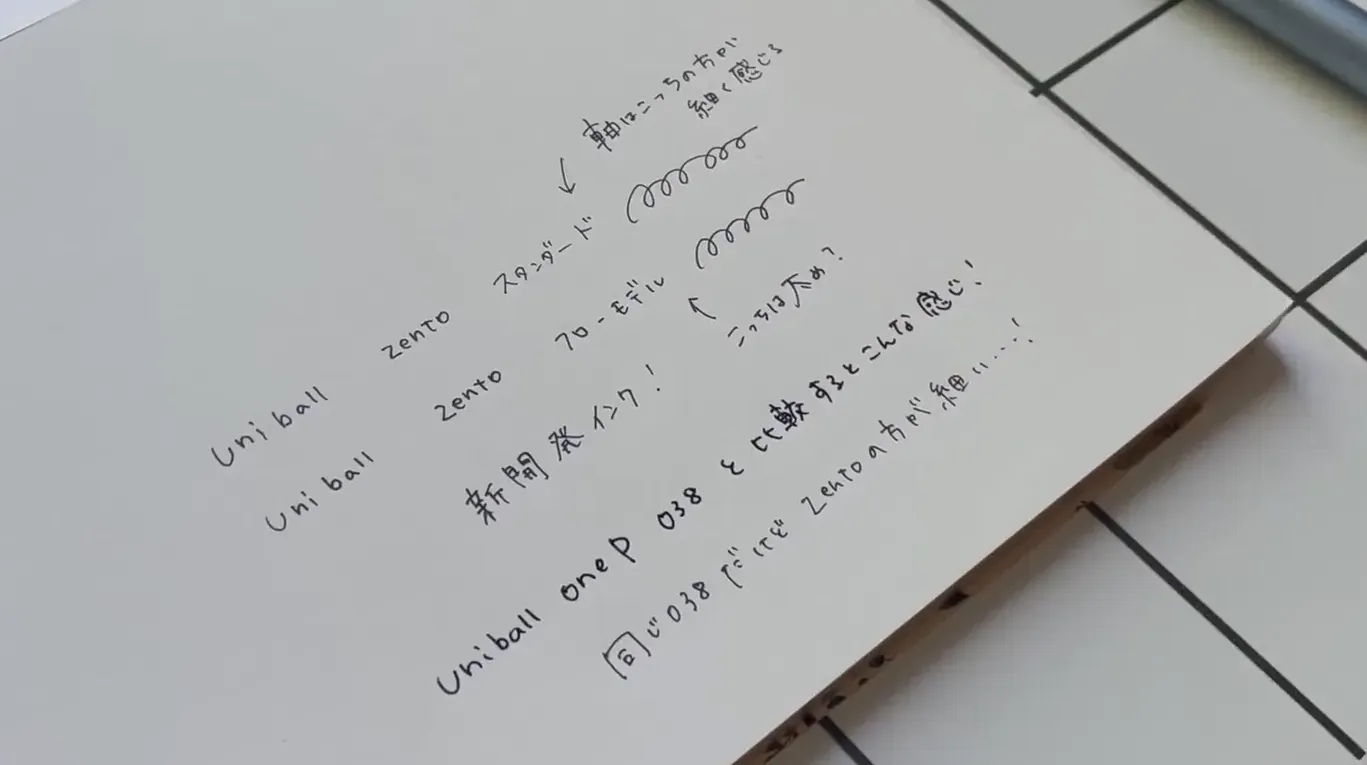 軸はこっちの方が
細く感じる
↓
uniball zento スタンダード
uniball zento フローモデル
↑
こっちは太め?
新開発インク!
uniball one P 038 と比較するとこんな感じ!
同じ038だけど zentoの方が細い…!